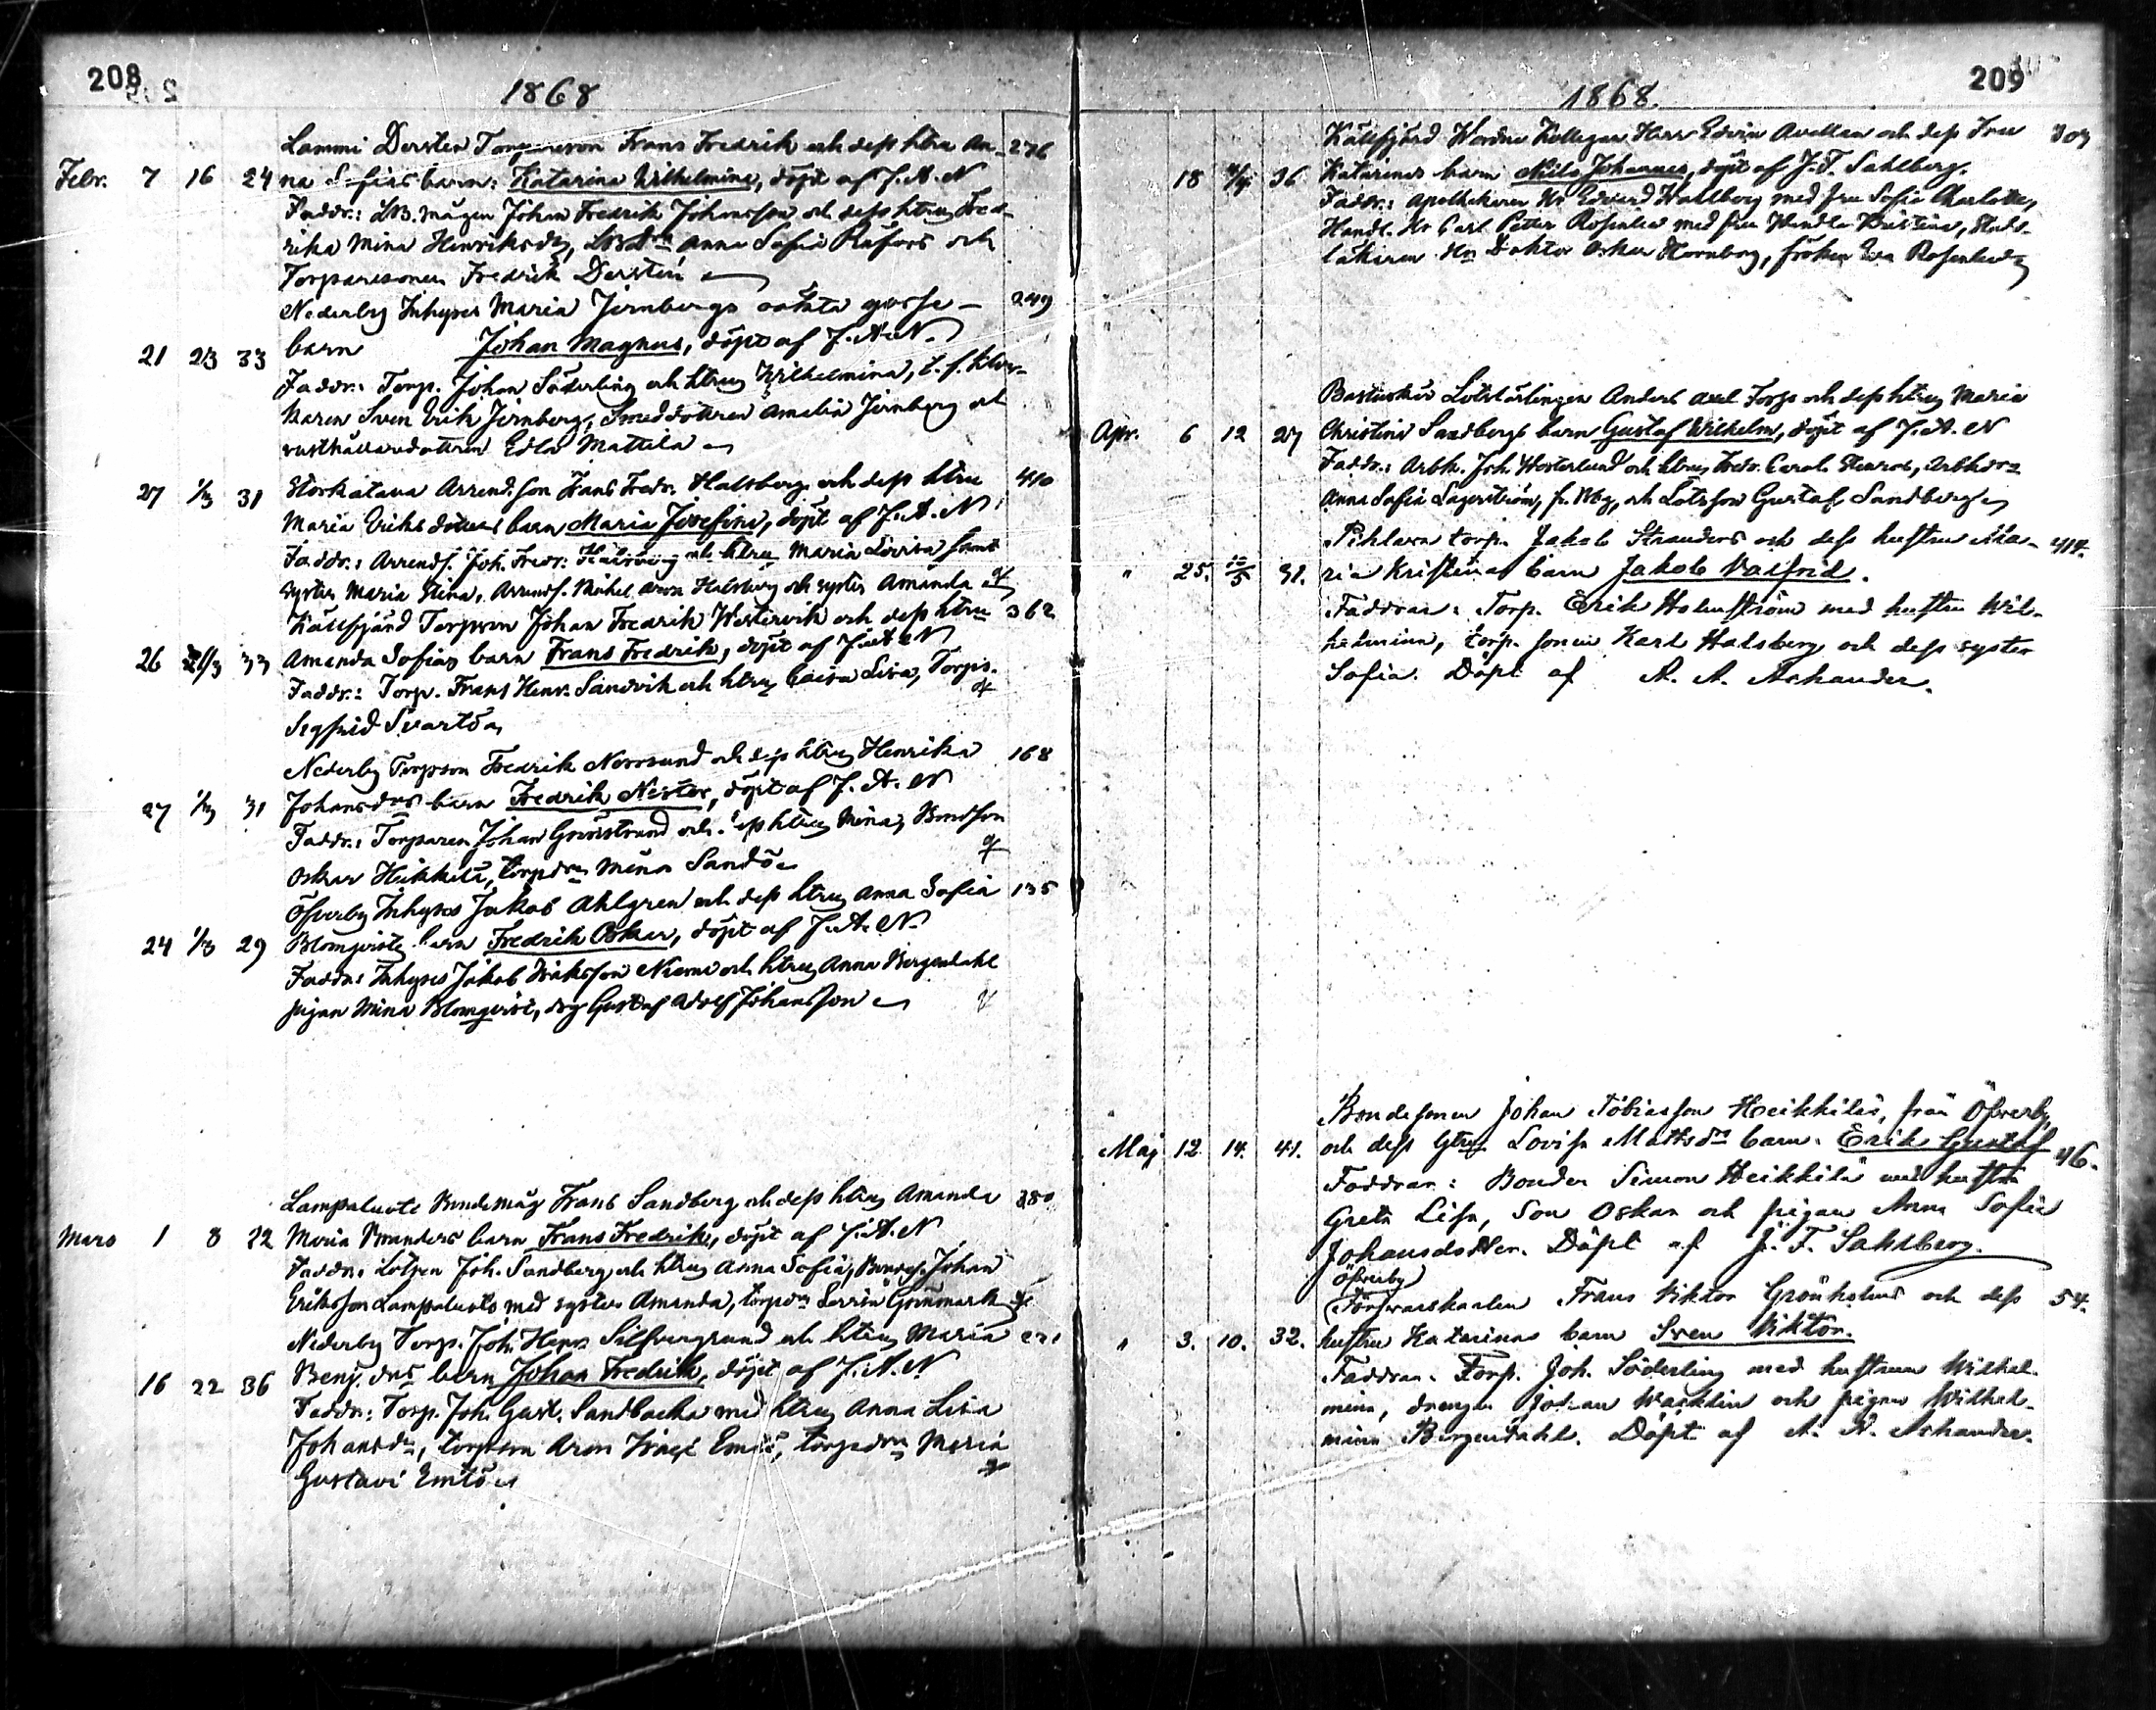 208
1868
Lammi Dersten Torpareson Frans Fredrik och dess htru An- 276
Febr. 7 16 24 na Sofias barn: Katarina Wilhelmina, döpt af J. A. N
Faddr.: mågen Johan Fredrik Johansson och dess htru Fred-
rika Mina Henriksdr, Anna Sofia och
Torparesonen Fredrik Dersten
Nederby Inhyses Maria Jernbergs oäkta gosse- 249
21 23 33 barn Johan Magnus, döpt af J. A. N.
Faddr.: Torp. Johan Söderling och htru Wilhelmina, t. f.
Sven Erik Jernberg, Smeddottren Amalia Jernberg och
rusthållaredottren Edla Mattila
27 1/3 31 Storkatava Arrend. son Frans Fredr. Halsberg och dess htru 410
Maria Eriksdotters barn Maria Josefina, döpt af J. A. N
Faddr.: Arrend. Joh. Fredr. Halsberg och htru Maria Lovisa samt
syster Maria Stina, Arrend. Mikel Aron Halsberg och syster Amanda
Källfjärd Torpson Johan Fredrik Westervik och dess htru 362
26 21/3 33 Amanda Sofias barn Frans Fredrik, döpt af J. A. N
Faddr.: Torp. Frans Henr. Sandvik och htru Caisa Lisa, Torps.
Segfrid Svartö
Nederby Torpson Fredrik Norrsund och dess htru Henrika 168
27 1/3 31 Johansdrs barn Fredrik Nestor, döpt af J. A. N
Faddr.: Torparen Johan Grönstrand och dess htru Mina, Bondson
Oskar Heikkilä, torpdrn Mina Sandö
Öfverby Inhyses Jakob Ahlgren och dess htru Anna Sofia 135
24 1/3 29 Blomqvists barn Fredrik Oskar, döpt af J. A. N.
Faddr: Inhyses Jakob Isaksson Niemi och htru Anna Bergendahl
pigan Mina Blomqvist, drg Gustaf Adolf Johansson
Lampaluoto Bondemåg Frans Sandberg och dess htru Amanda 380
Mars 1 8 22 Maria Branders barn Frans Fredrik, döpt af J. A. N
Faddr: Lotsen Joh. Sandberg och htru Anna Sofia, Bondes. Johan
Eriksson Lampaluoto med syster Amanda, torpdrn Serrin Grönmark
Nederby Torp. Joh. Henr. Silfvergrund och htru Maria 221
16 22 36 Benj. drs barn Johan Fredrik, döpt af J. A. N.
Faddr: Torp. Joh. Gust. Sandbacka med htru Anna Lisa
Johansdr, torpson Aron Emtö, torpdrn Maria
Gustava Emtö
209
1868.
Källfjärd Wordne Kollegan Herr Edvin Avellan och dess Fru 309
18 4/4 36 Katarinas barn Nils Johannes, döpt af J. F. Sahlberg.
Faddr.: Apothekaren Hr Edvard Wahlberg med fru Sofia Charlotta,
Handl. Hr Carl Petter Rosenlew med fru Wendla Kristina, Stads-
läkaren Hr Doktor Oskar Hornborg, fröken Eva Rosenlew
Bastuskär Lotslärlingen Anders Axel Forss och dess htru Maria
Apr. 6 12 27 Christina Sandbergs barn Gustaf Wilhelm, döpt af J. A. N
Faddr.: Arbk. Joh. Westerlund och htru Fredr. Carol. Arbkdr
Anna Sofia Lagerström, fr. Bbg, och Lotsson Gustaf Sandberg
Pihlava torp. Jakob Stranders och dess hustru Ma- 414.
" 25. 10/5 31. ria Kristinas barn Jakob Valfrid.
Faddrar: Torp. Erik Holmström med hustru Wil-
helmina, torp. sonen Karl Halsberg och dess syster
Sofia. Döpt af A. A. Ashander.
Bondesonen Johan Tobiasson Heikkilä, från Öfverby,
Maj 12 14. 41. och dess htru Lovisa Mattsdrs barn. Erik Gustaf 46.
Faddrar: Bonden Simon Heikkilä med hustru
Greta Lisa, Son Oskar och pigan Anna Sofia
Johansdotter. Döpt af J. F. Sahlberg.
Öfverby
(Förvarskarlen Frans Viktor Grönholms och dess 54.
" 3. 10. 32. hustru Katarinas barn Sven Viktor.
Faddrar. Torp. Joh. Söderling med hustrun Wilhel-
mina, drengen Johan Wacklin och pigan Wilhel-
mina Bergendahl. Döpt af A. A. Ashander.